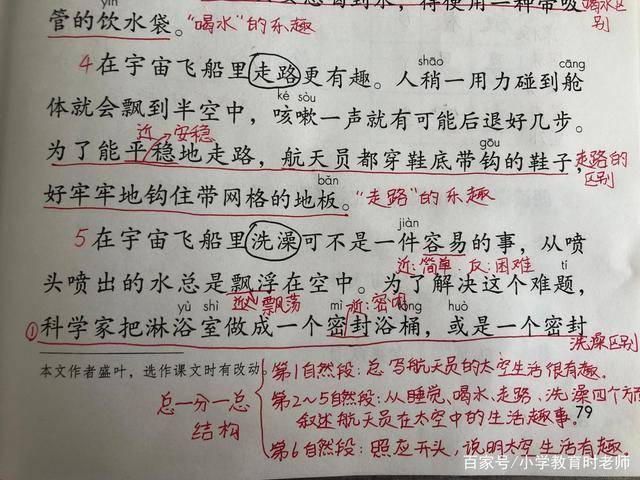 喝水区别
管的饮水袋。"喝水"的乐趣
shāo cāng
4 在宇宙飞船里走路更有趣。人稍一用力碰到舱
ké sòu
体就会飘到半空中，咳嗽一声就有可能后退好几步。
近 安稳 gōu
为了能平稳地走路，航天员都穿鞋底带钩的鞋子，走路的区别
bǎn
好牢牢地钩住带网格的地板。"走路"的乐趣
jiàn
5 在宇宙飞船里洗澡可不是一件容易的事，从喷
近:简单 反:困难 tí
头喷出的水总是飘浮在空中。为了解决这个难题，
近 飘荡 yù shì mì 近:密闭 tǒng huò
①科学家把淋浴室做成一个密封浴桶，或是一个密封
洗澡区别
本文作者盛叶，选作课文时有改动
总一分一总结构
第1自然段:总写航天员的太空生活很有趣。
第2~5自然段:从睡觉、喝水、走路、洗澡四个方面
叙述航天员在太空中的生活趣事。
第6自然段:照应开头，说明太空生活有趣。
79
百家号/小学教育时老师